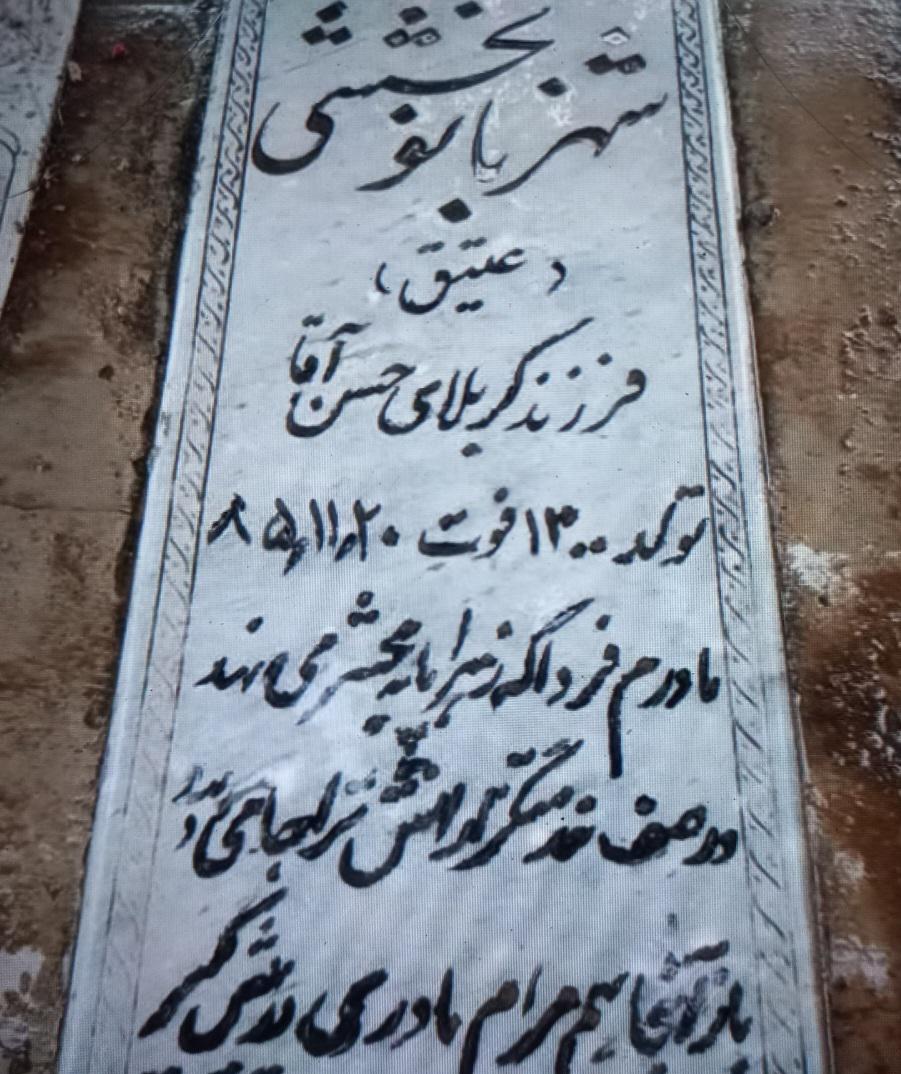 شهربانو بخشی
(عتیق)
فرزند کربلای حسن آقا
تولد ۱۳۰۰ فوت ۸۵٫۱۱٫۲۰
مادرم فردا که زهرا پا به محشر می نهد
در صف خدمتگزارانش ترا جا می دهد
باز آنجا هم مرام مادری در پیش گیر